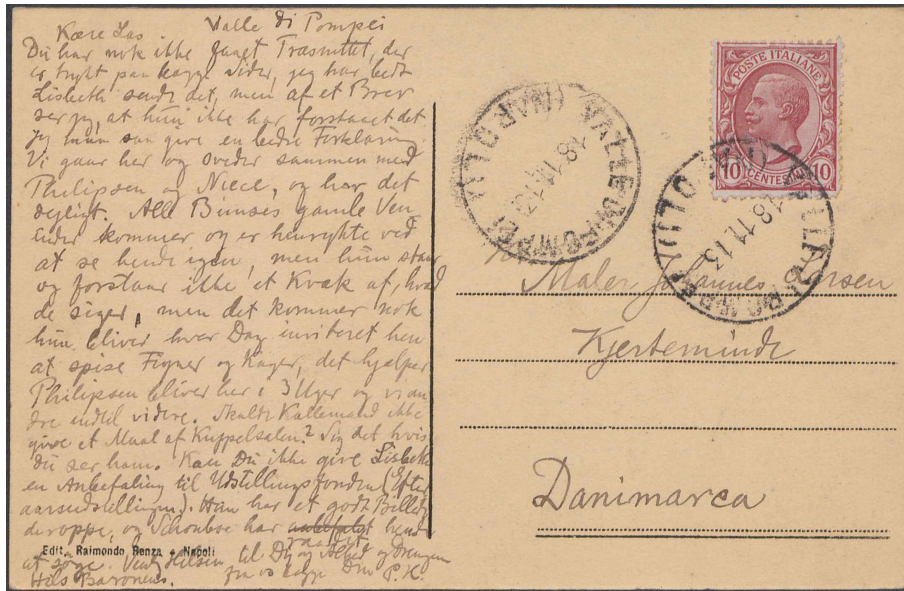 Kære Las Valle di Pompei
Du har nok ikke faaet Træsnittet, der
er trykt paa begge Sider, jeg har bedt
Lisbeth sende det, men af et Brev
ser jeg, at hun ikke har forstaaet det
jeg maa saa give en bedre Forklaring.
Vi gaar her og sveder sammen med
Philipsen og Niece, og har det
dejligt. Alle Bimses gamle Ven
inder kommer og er henrykte ved
at se hende igen, men hun staar
og forstaar ikke et Kvæk af, hvad
de siger, men det kommer nok
hun bliver hver Dag inviteret hen
at spise Figner og Kager, det hjælper
Philipsen bliver her i 3 Uger og vi an
dre indtil videre. Skulde Kallemand ikke
give et Maal af Kuppelsalen? Sig det hvis
Du ser ham. Kan Du ikke give Lisbeth
en Anbefaling til Udstillingsfonden (Efter
aarsudstillingen). Hun har et godt Billede
deroppe, og Schonboe har raadet hende
at søge. Venlig Hilsen til Dig og Alhed og Drengene
Hils Baronens. fra os begge Din P.H.
Edit. Raimondo Renza - Napoli
VALLE DI POMPEI (NAPOLI)
18.11.13
POSTE ITALIANE
10 CENTESIMI 10
VALLE DI POMPEI (NAPOLI)
18.11.13
Maler Johannes Larsen
Kjerteminde
Danimarca